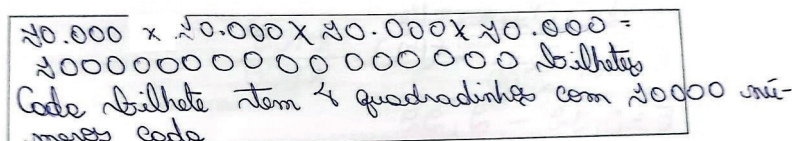 10.000 x 10.000 X 10.000 X 10.000 =
10000000000000000 bilhetes
Cada bilhete tem 4 quadradinhos com 10000 nú-
meros cada